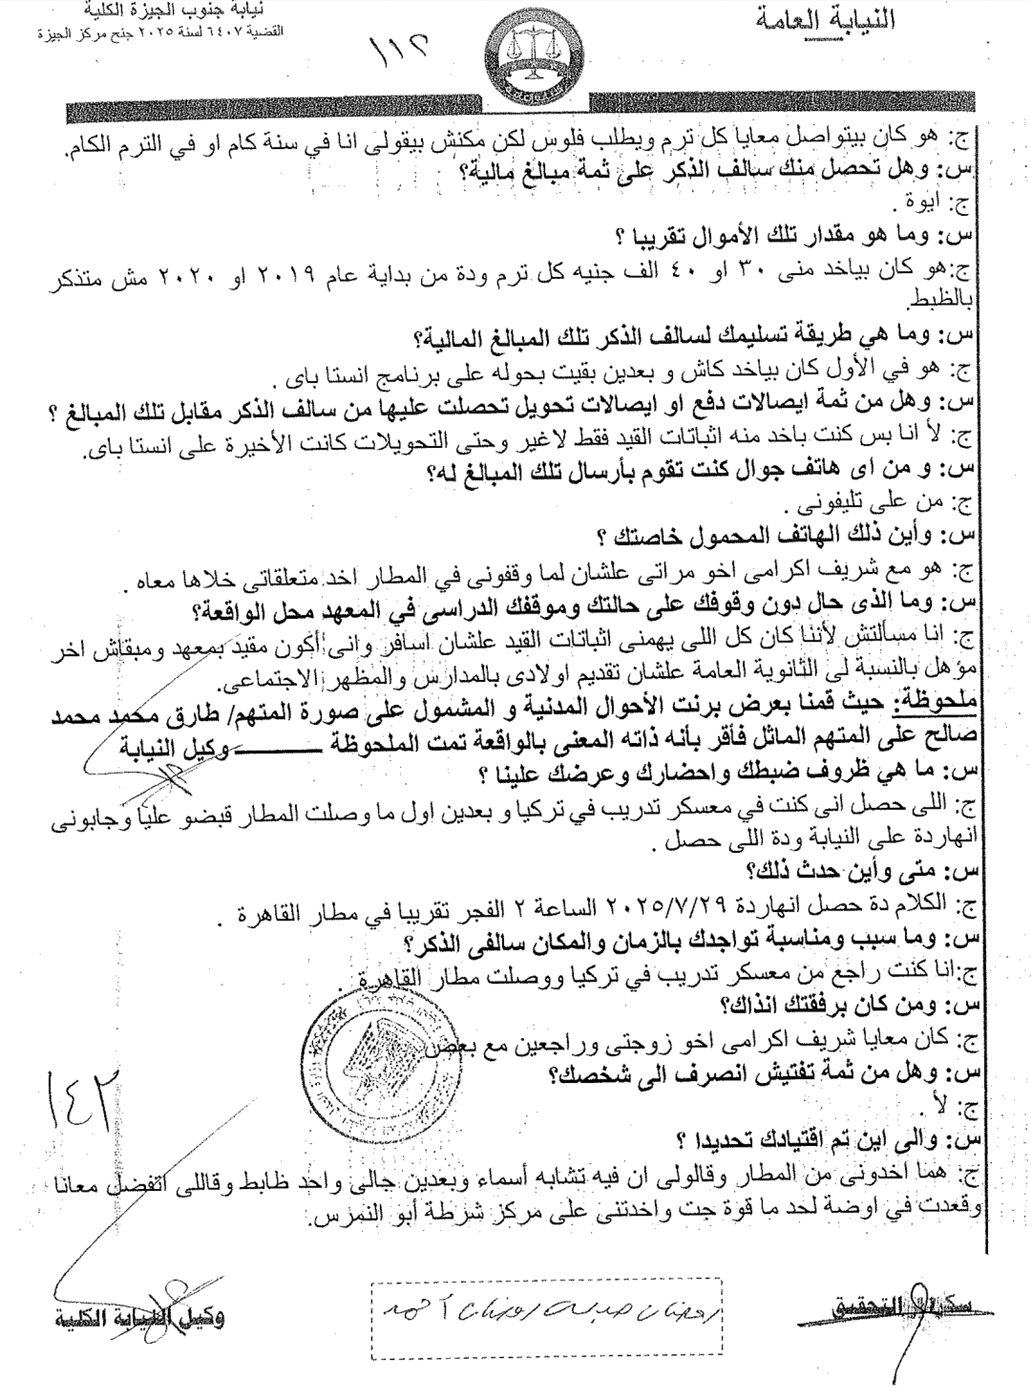 النيابة العامة
نيابة جنوب الجيزة الكلية
القضية ٦٤٠٧ لسنة ٢٠٢٥ جنح مركز الجيزة
١١٢
ج: هو كان بيتواصل معايا كل ترم ويطلب فلوس لكن مكنش بيقولى انا في سنة كام او في الترم الكام.
س: وهل تحصل منك سالف الذكر على ثمة مبالغ مالية؟
ج: ايوة .
س: وما هو مقدار تلك الأموال تقريبا ؟
ج:هو كان بياخد منى ٣٠ او ٤٠ الف جنيه كل ترم ودة من بداية عام ٢٠١٩ او ٢٠٢٠ مش متذكر
بالظبط.
س: وما هي طريقة تسليمك لسالف الذكر تلك المبالغ المالية؟
ج: هو في الأول كان بياخد كاش و بعدين بقيت بحوله على برنامج انستا باى .
س: وهل من ثمة ايصالات دفع او ايصالات تحويل تحصلت عليها من سالف الذكر مقابل تلك المبالغ ؟
ج: لأ انا بس كنت باخد منه اثباتات القيد فقط لاغير وحتى التحويلات كانت الأخيرة على انستا باى.
س: و من اى هاتف جوال كنت تقوم بأرسال تلك المبالغ له؟
ج: من على تليفونى .
س: وأين ذلك الهاتف المحمول خاصتك ؟
ج: هو مع شريف اكرامى اخو مراتى علشان لما وقفونى في المطار اخد متعلقاتى خلاها معاه .
س: وما الذى حال دون وقوفك على حالتك وموقفك الدراسى في المعهد محل الواقعة؟
ج: انا مسألتش لأننا كان كل اللى يهمنى اثباتات القيد علشان اسافر وانى أكون مقيد بمعهد ومبقاش اخر
مؤهل بالنسبة لى الثانوية العامة علشان تقديم اولادى بالمدارس والمظهر الاجتماعى.
ملحوظة: حيث قمنا بعرض برنت الأحوال المدنية و المشمول على صورة المتهم/ طارق محمد محمد
صالح على المتهم الماثل فأقر بأنه ذاته المعنى بالواقعة تمت الملحوظة ــــــــــــ وكيل النيابة
س: ما هي ظروف ضبطك واحضارك وعرضك علينا ؟
ج: اللى حصل انى كنت في معسكر تدريب في تركيا و بعدين اول ما وصلت المطار قبضو عليا وجابونى
انهاردة على النيابة ودة اللى حصل .
س: متى وأين حدث ذلك؟
ج: الكلام دة حصل انهاردة ٢٠٢٥/٧/٢٩ الساعة ٢ الفجر تقريبا في مطار القاهرة .
س: وما سبب ومناسبة تواجدك بالزمان والمكان سالفى الذكر؟
ج:انا كنت راجع من معسكر تدريب في تركيا ووصلت مطار القاهرة .
س: ومن كان برفقتك انذاك؟
ج: كان معايا شريف اكرامى اخو زوجتى وراجعين مع بعض
س: وهل من ثمة تفتيش انصرف الى شخصك؟
ج: لأ .
١٤٢
س: والى اين تم اقتيادك تحديدا ؟
ج: هما اخدونى من المطار وقالولى ان فيه تشابه أسماء وبعدين جالى واحد ظابط وقاللى اتفضل معانا
وقعدت في اوضة لحد ما قوة جت واخدتنى على مركز شرطة أبو النمرس.
سكرتير التحقيق
رمضان رمضان أحمد
وكيل النيابة الكلية